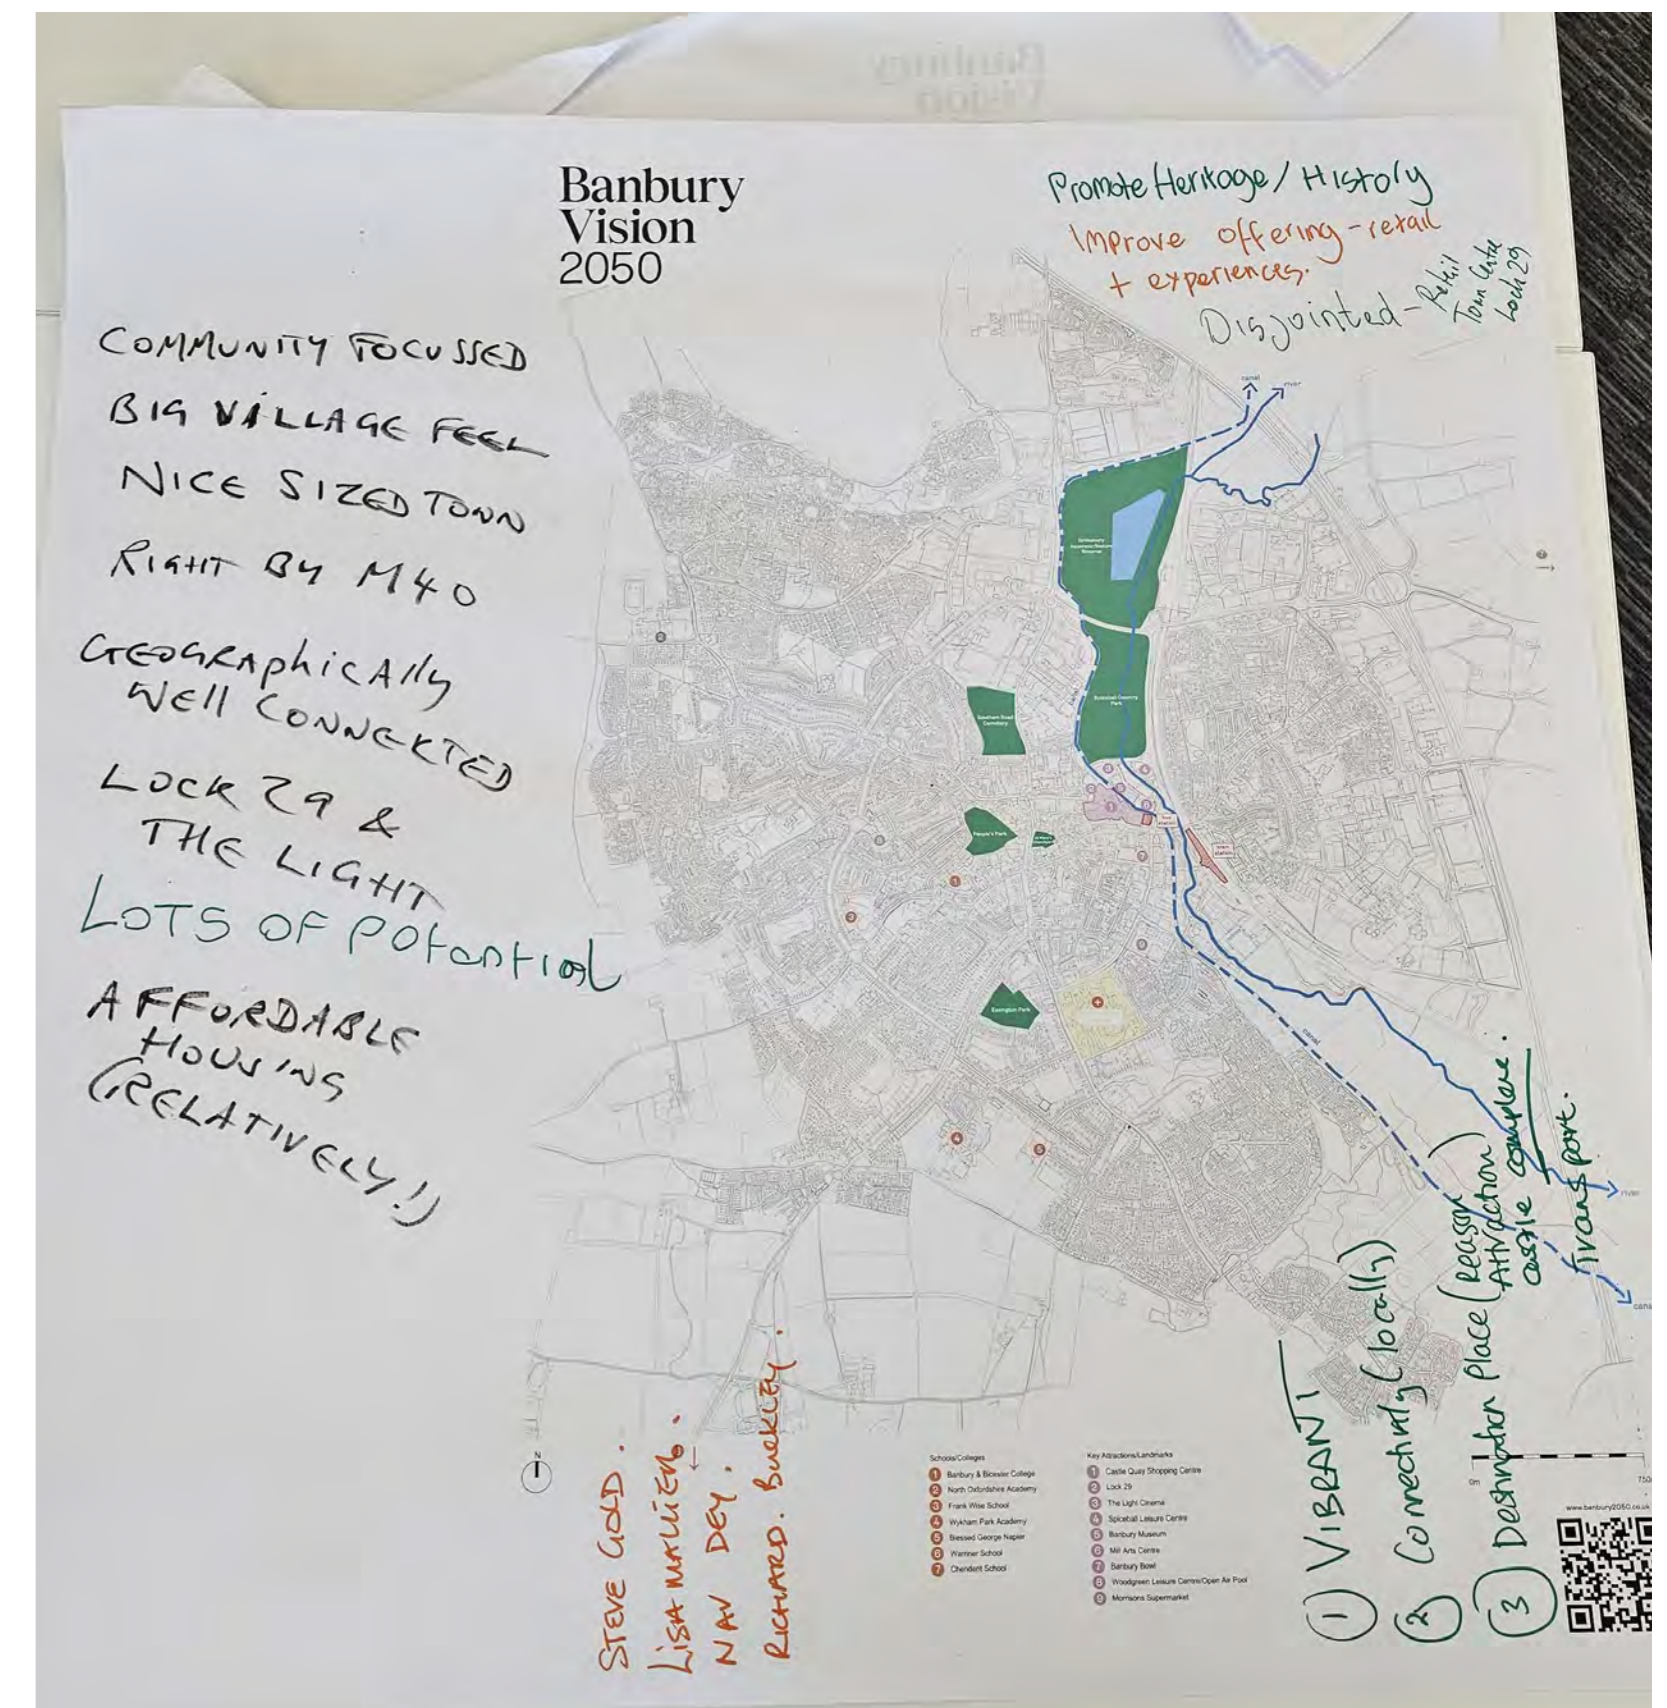 Banbury
Vision
Banbury
Vision
2050
Promote Heritage / History
Improve offering - retail
+ experiences.
Disjointed -
Retail
Town Centre
Lock 29
COMMUNITY FOCUSSED
BIG VILLAGE FEEL
NICE SIZED TOWN
RIGHT BY M40
GEOGRAphicAlly
WEll CONNEKTED
LOCK 29 &
THE LIGHT
LOTS OF Potential
AFFORDABLE
HOUSING
(RELATIVELY!)
canal
river
Country
Park
Cemetery
People's Park
bus
station
train
station
Easington Park
canal
river
STEVE GOLD.
LISA
NAV DEY.
RICHARD. BUCKLEY.
N
Schools/Colleges
1 Banbury & Bicester College
2 North Oxfordshire Academy
3 Frank Wise School
4 Wykham Park Academy
5 Blessed George Napier
6 Warriner School
7 Chendent School
Key Attractions/Landmarks
1 Castle Quay Shopping Centre
2 Lock 29
3 The Light Cinema
4 Spiceball Leisure Centre
5 Banbury Museum
6 Mill Arts Centre
7 Banbury Bowl
8 Woodgreen Leisure Centre/Open Air Pool
9 Morrisons Supermarket
1 VIBRANT
2 Connectivity (locally)
3 Destination Place (reason)
Attraction)
castle complexe.
Transport.
0m
750
www.banbury2050.co.uk